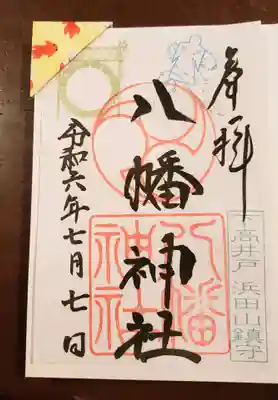 奉拝
高井戸 浜田山鎮守
八幡神社
八幡神社
令和六年七月七日